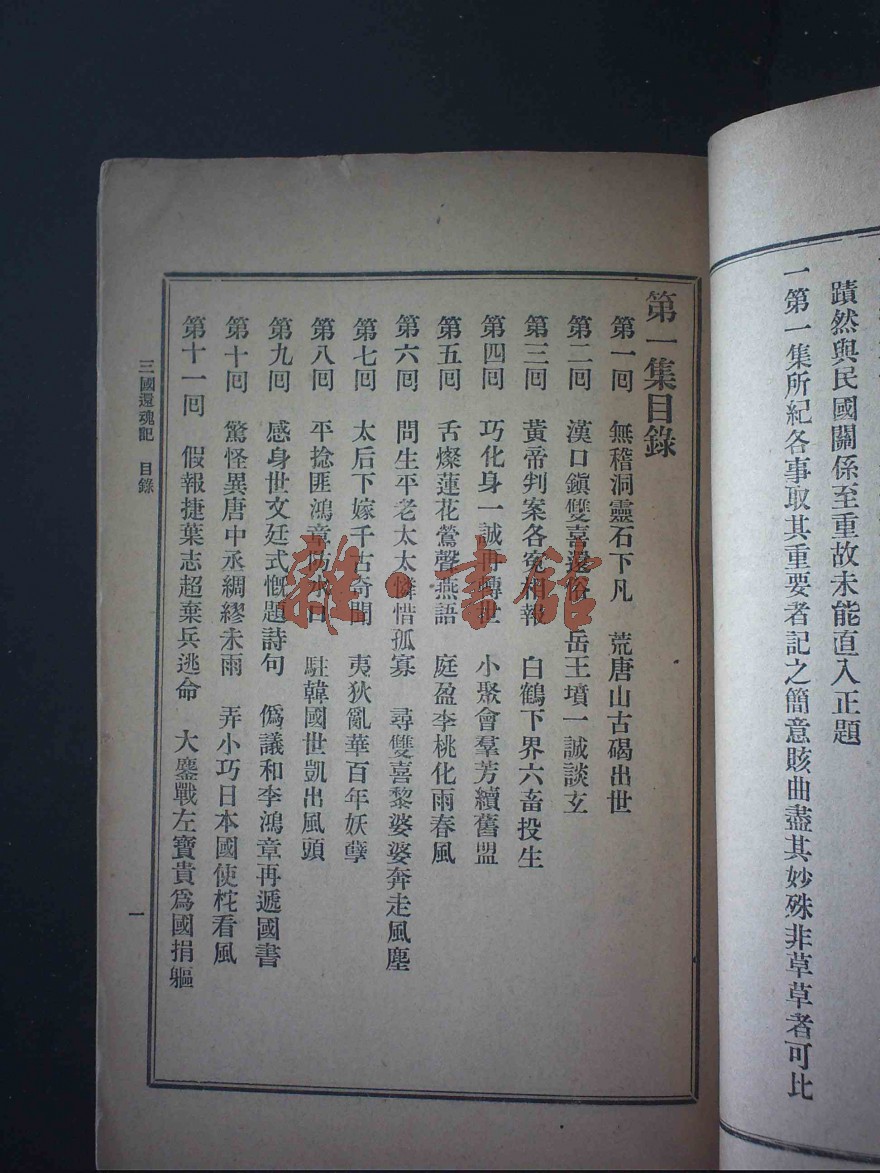 蹟然與民國關係至重故未能直入正題
一第一集所紀各事取其重要者記之簡意賅曲盡其妙殊非草草者可比
第一集目錄
第一回 無稽洞靈石下凡 荒唐山古碣出世
第二回 漢口鎮雙喜還俗 岳王墳一誠談玄
第三回 黃帝判案各冤相報 白鶴下界六畜投生
第四回 巧化身一誠再轉世 小聚會羣芳續舊盟
第五回 舌燦蓮花鶯聲燕語 庭盈李桃化雨春風
第六回 問生平老太太憐惜孤寡 尋雙喜黎婆婆奔走風塵
第七回 太后下嫁千古奇聞 夷狄亂華百年妖孽
第八回 平捻匪鴻章防水口 駐韓國世凱出風頭
第九回 感身世文廷式慨題詩句 僞議和李鴻章再遞國書
第十回 驚怪異唐中丞綢繆未雨 弄小巧日本國使柁看風
第十一回 假報捷葉志超棄兵逃命 大鏖戰左寶貴爲國捐軀
三國還魂記 目錄
一
雜·書館